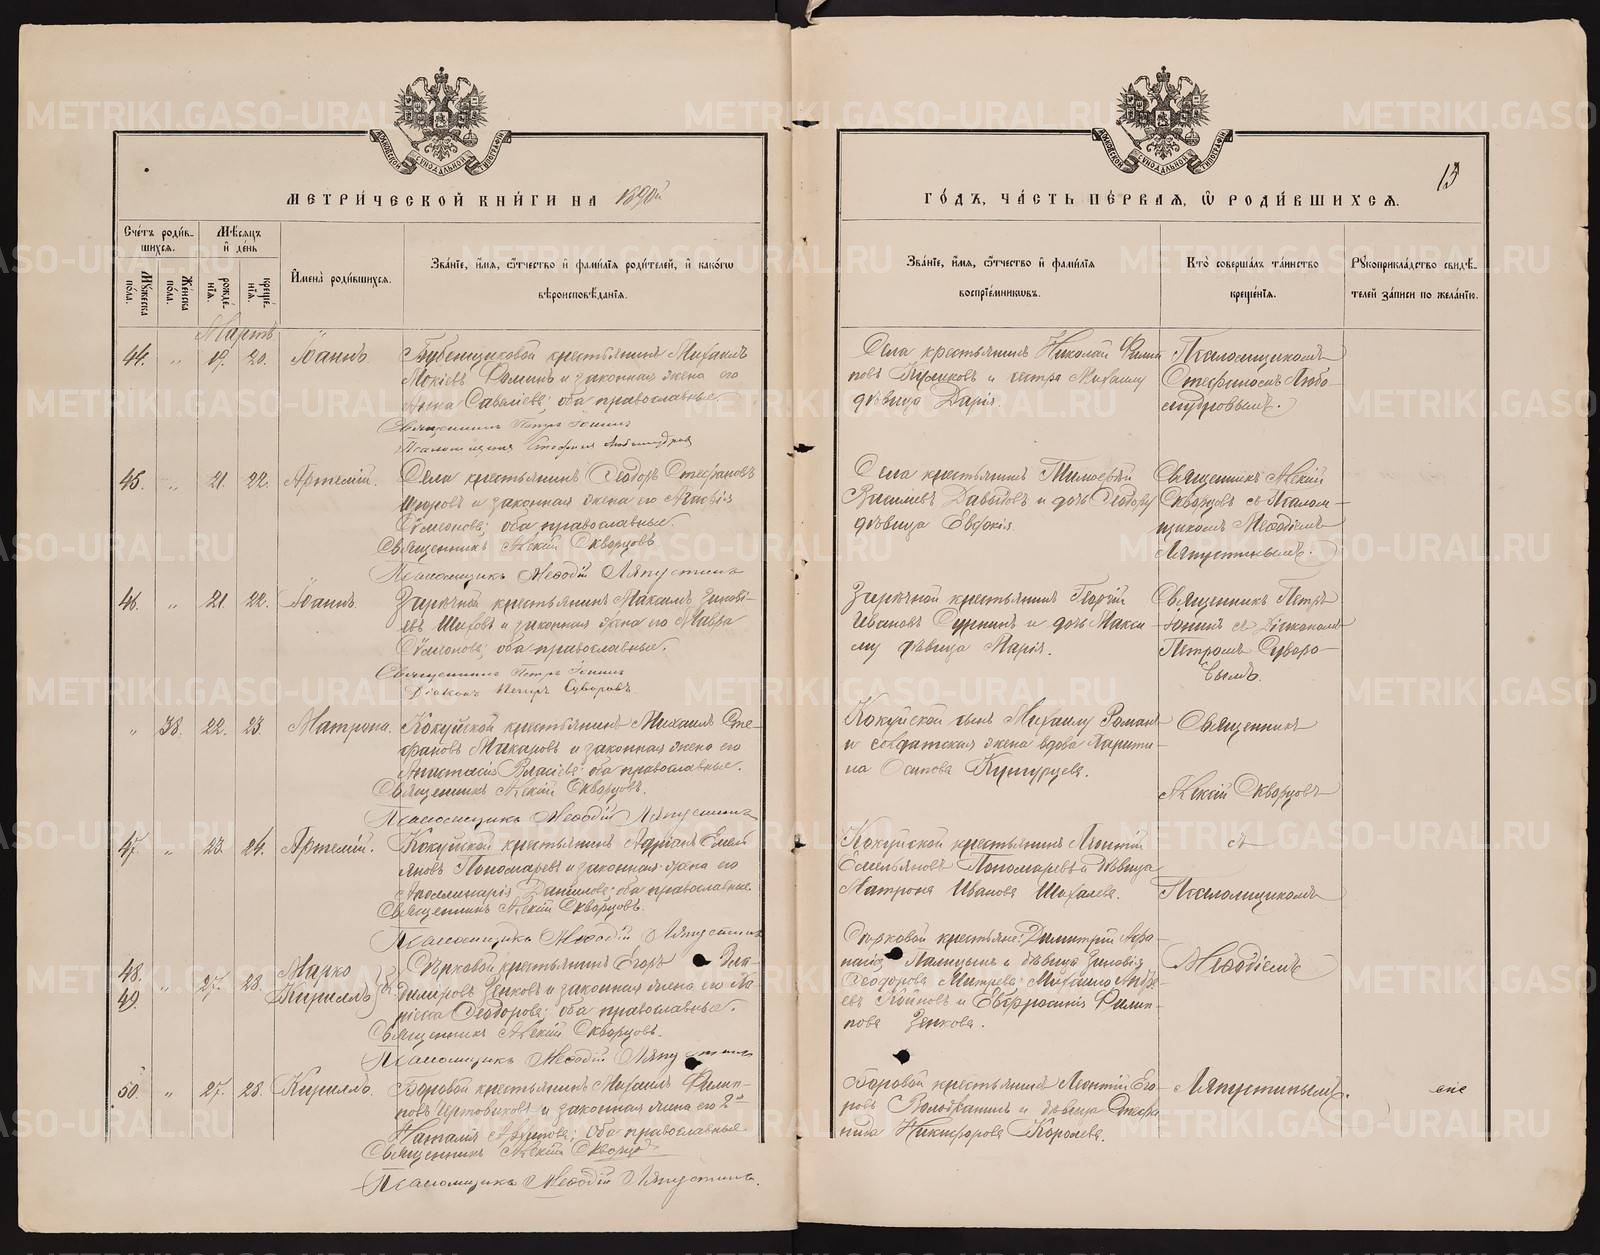 МЕТРИ́ЧЕСКОЙ КНИ́ГИ НА 1890й
ГО́ДЪ, ЧА́СТЬ ПЕ́РВАЯ, Ѡ РОДИ́ВШИХСЯ.
13
Сче́тъ роди́в-
шихся.
Мѣ́сяцъ
и де́нь
Му́жеска
по́ла.
Же́нска
по́ла.
рожде́-
нїя.
креще́-
нїя.
И҆мена̀ роди́вшихся.
Зва́нїе, и҆́мя, ѻ҆́тчество и҆ фами́лїя роди́телей, и҆ како́гѡ
вѣроисповѣ́данїя.
Зва́нїе, и҆́мя, ѻ҆́тчество и҆ фами́лїя
воспрїе́мникѡвъ.
Кто̀ соверша́лъ та́инство
креще́нїя.
Рꙋкоприкла́дство свидѣ́-
телей за́писи по жела́нїю.
Мартъ
44. " 19. 20. Іоаннъ
крестьянинъ Михаилъ
Мокіевъ Фоминъ и законная жена его
Анна Савеліева; оба православные.
Священникъ Петръ Іонинъ
Псаломщикъ Стефанъ Любомудровъ
Села крестьянинъ Николай Филип
повъ Куликовъ и сестра Михаилу
дѣвица Дарія.
Псаломщикомъ
Стефаномъ Любо-
мудровымъ.
45. " 21. 22. Артемій.
Села крестьянинъ Ѳеодоръ Стефановъ
и законная жена его
Симеонова; оба православные.
Священникъ Алексій Скворцовъ
Псаломщикъ Меѳодій Ляпустинъ
Села крестьянинъ Тимоѳей
Васильевъ Давыдовъ и дочь Ѳеодору
дѣвица Евфимія.
Священникъ Алексій
Скворцовъ съ Псалом-
щикомъ Меѳодіемъ
Ляпустинымъ.
46. " 21. 22. Іоаннъ.
Зарѣчной крестьянинъ Максимъ Зинові-
евъ Шаховъ и законная жена его Мавра
Симеонова; оба православные.
Священникъ Петръ Іонинъ
Діаконъ Петръ Суворовъ
Зарѣчной крестьянинъ Георгій
Ивановъ и дочь Макси-
му дѣвица Марія.
Священникъ Петръ
Іонинъ съ Діакономъ
Петромъ Суворо-
вымъ.
" 38. 22. 23. Матрона.
Кокуйской крестьянинъ Михаилъ Сте-
фановъ Макаровъ и законная жена его
Анастасія Власіева; оба православные.
Священникъ Алексій Скворцовъ.
Псаломщикъ Меѳодій Ляпустинъ
Кокуйской сынъ Михаилу Романъ
и солдатская жена вдова Харити-
на Осипова Кунгурцева.
Священникъ
Алексій Скворцовъ
47. " 23. 24. Артемій.
Кокуйской крестьянинъ Адріанъ Емел
яновъ Пономаревъ и законная жена его
Аполлинарія Данилова; оба православные.
Священникъ Алексій Скворцовъ.
Псаломщикъ Меѳодій Ляпустинъ
Кокуйской крестьянинъ Леонтій
Емельяновъ Пономаревъ и дѣвица
Матрона Иванова Шахалева.
съ
Псаломщикомъ
48.
49. " 27. 28. Марко
Кириллъ
крестьянинъ Егоръ Вла-
диміровъ Зенковъ и законная жена его Ла-
рисса Ѳеодорова; оба православные.
Священникъ Алексій Скворцовъ.
Псаломщикъ Меѳодій Ляпустинъ
крестьяне: Димитрій Аѳа-
насі Ляпустинъ и дѣвица Зиновія
Ѳеодорова Митрева; Михаилъ Андре-
евъ и Евфросинія Филип-
пова Зенкова.
Меѳодіемъ
50. " 27. 28. Кириллъ.
Боровой крестьянинъ Михаилъ Филип-
повъ Чертовиковъ и законная жена его 2я
Наталія Архипова; оба православные
Священникъ Алексій Скворцо
Псаломщикъ Меѳодій Ляпустинъ.
Боровой крестьянинъ Леонтій Его-
ровъ и дѣвица Стефа-
нида Никифорова Королева.
Ляпустинымъ.
METRIKI.GASO-URAL.RU